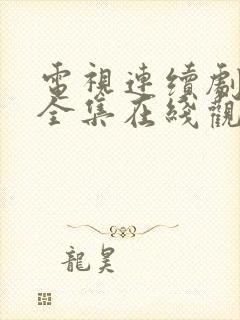 電視連續劇
全集在綫觀
龍昊